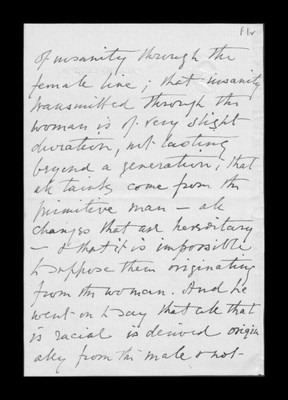 of insanity through the
female line; that insanity
transmitted through the
woman is of very slight
duration, not lasting
beyond a generation; that
all taints come from the
primitive man – all
changes that are hereditary
– & that it is impossible
to suppose them originating
from the woman. And he
went on to say that all that
is racial is derived origin
ally from the male & not–